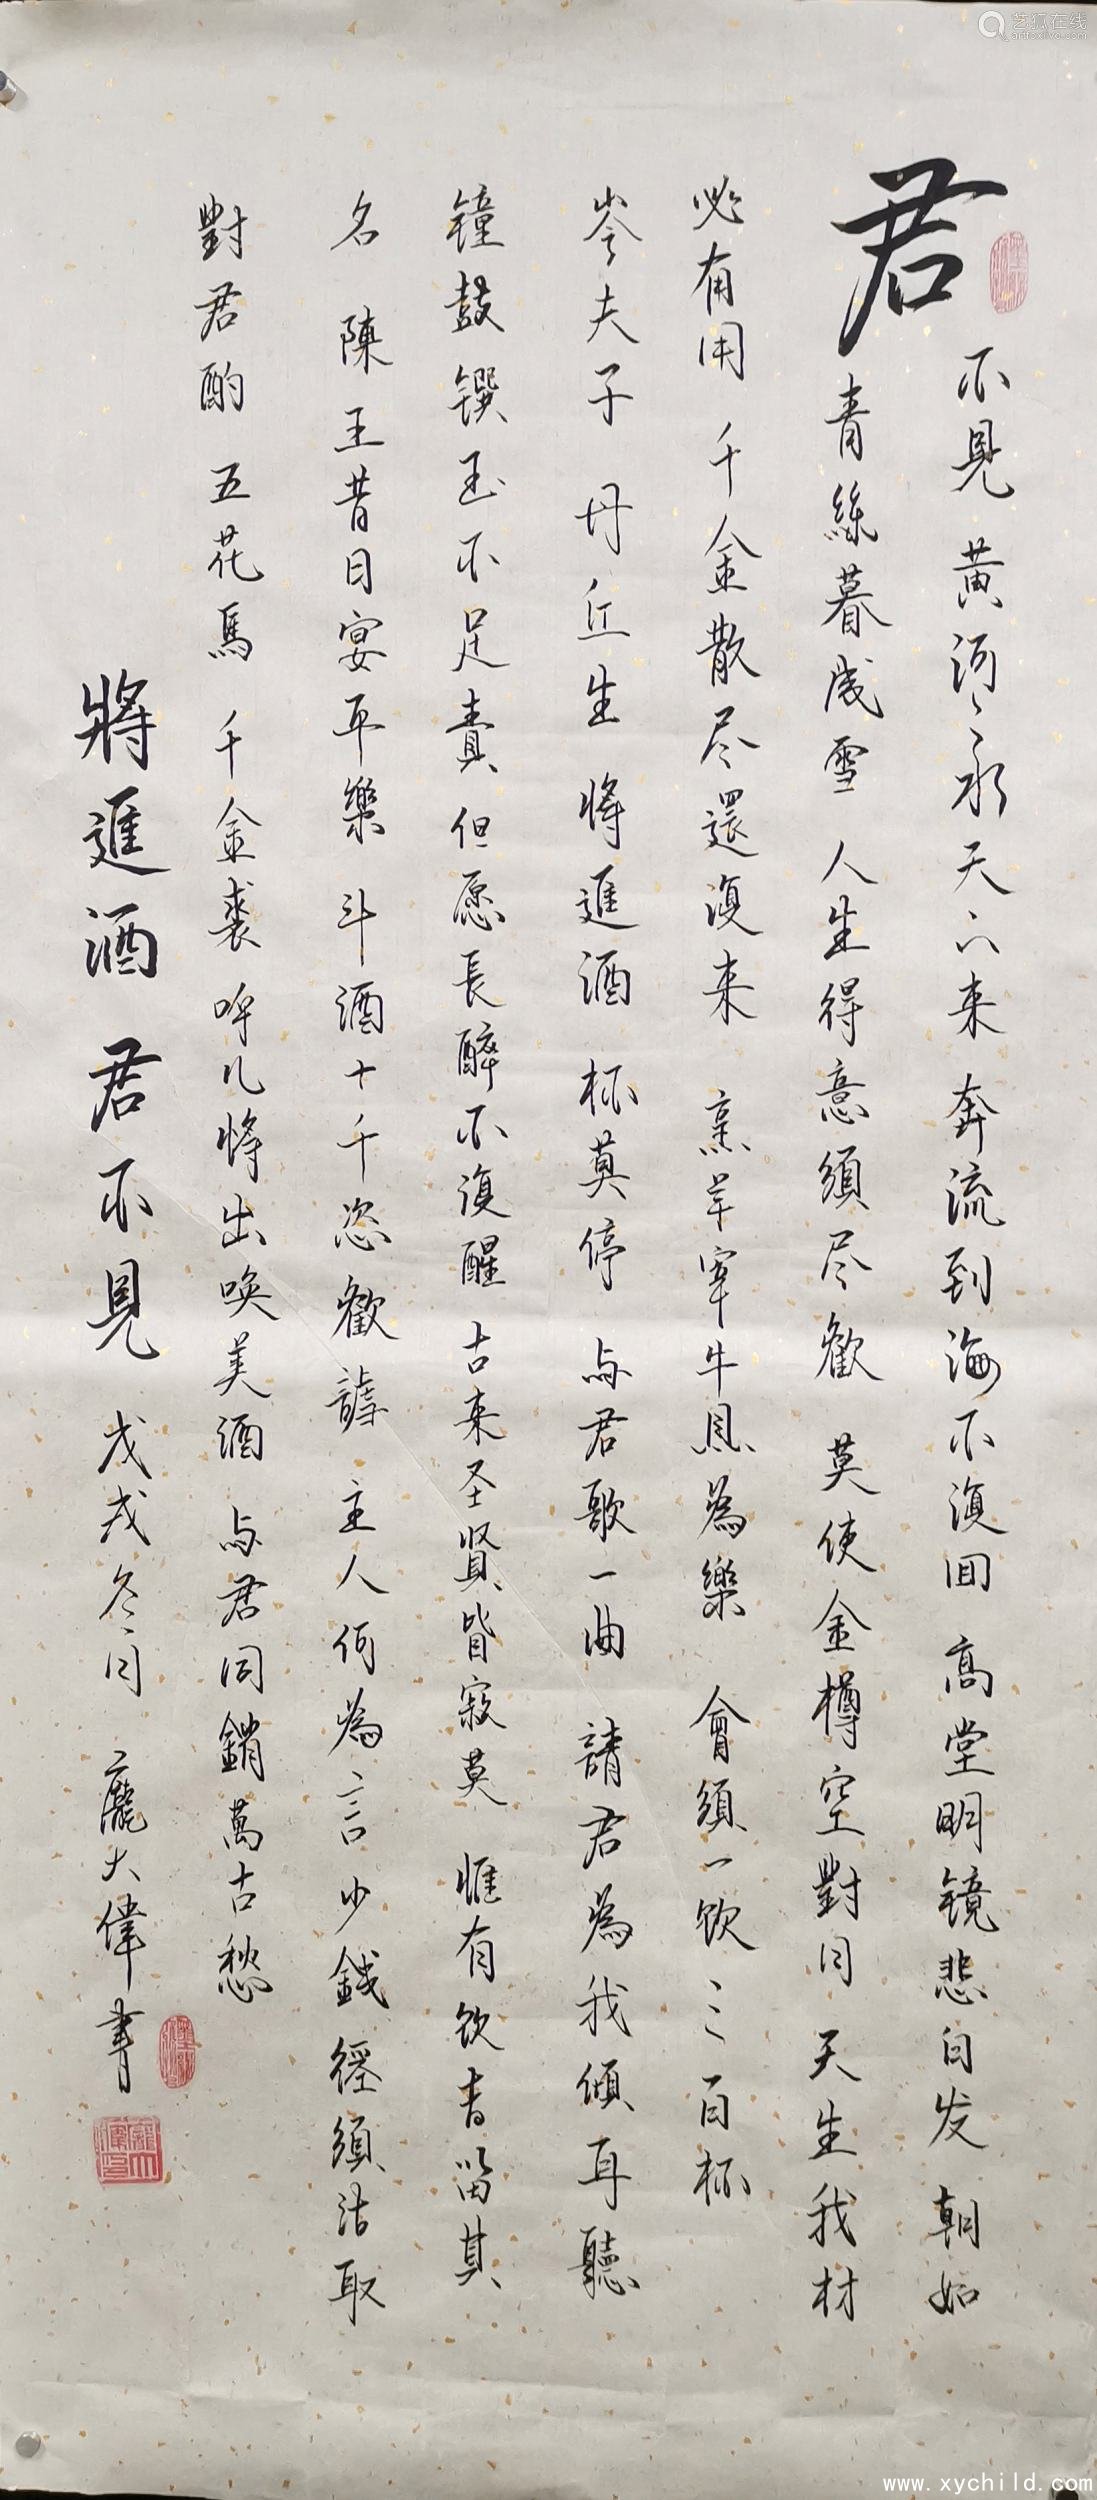 君不見 黄河之水天上来 奔流到海不復回 高堂明镜悲白发 朝如
青絲暮成雪 人生得意須尽歡 莫使金樽空對月 天生我材
必有用 千金散尽還復来 烹羊宰牛且為樂 會須一饮三百杯
岑夫子 丹丘生 將進酒 杯莫停 与君歌一曲 請君為我傾耳聽
鐘鼓馔玉不足貴 但愿長醉不復醒 古来圣賢皆寂莫 惟有饮者留其
名 陳王昔日宴平樂 斗酒十千恣歡謔 主人何為言少錢 徑須沽取
對君酌 五花馬 千金裘 呼儿將出唤美酒 与君同銷萬古愁
將進酒 君不見 戊戌冬月 龐大偉書
艺狐在线
artfoxlive.com
www.xychild.com